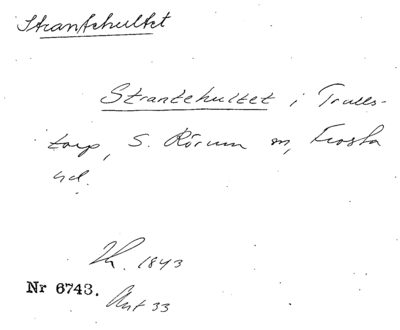 Strantehultet
Strantehultet i Trulls-
torp, S. Rörum sn, Frosta
hd.
1843
Nr 6743.
33